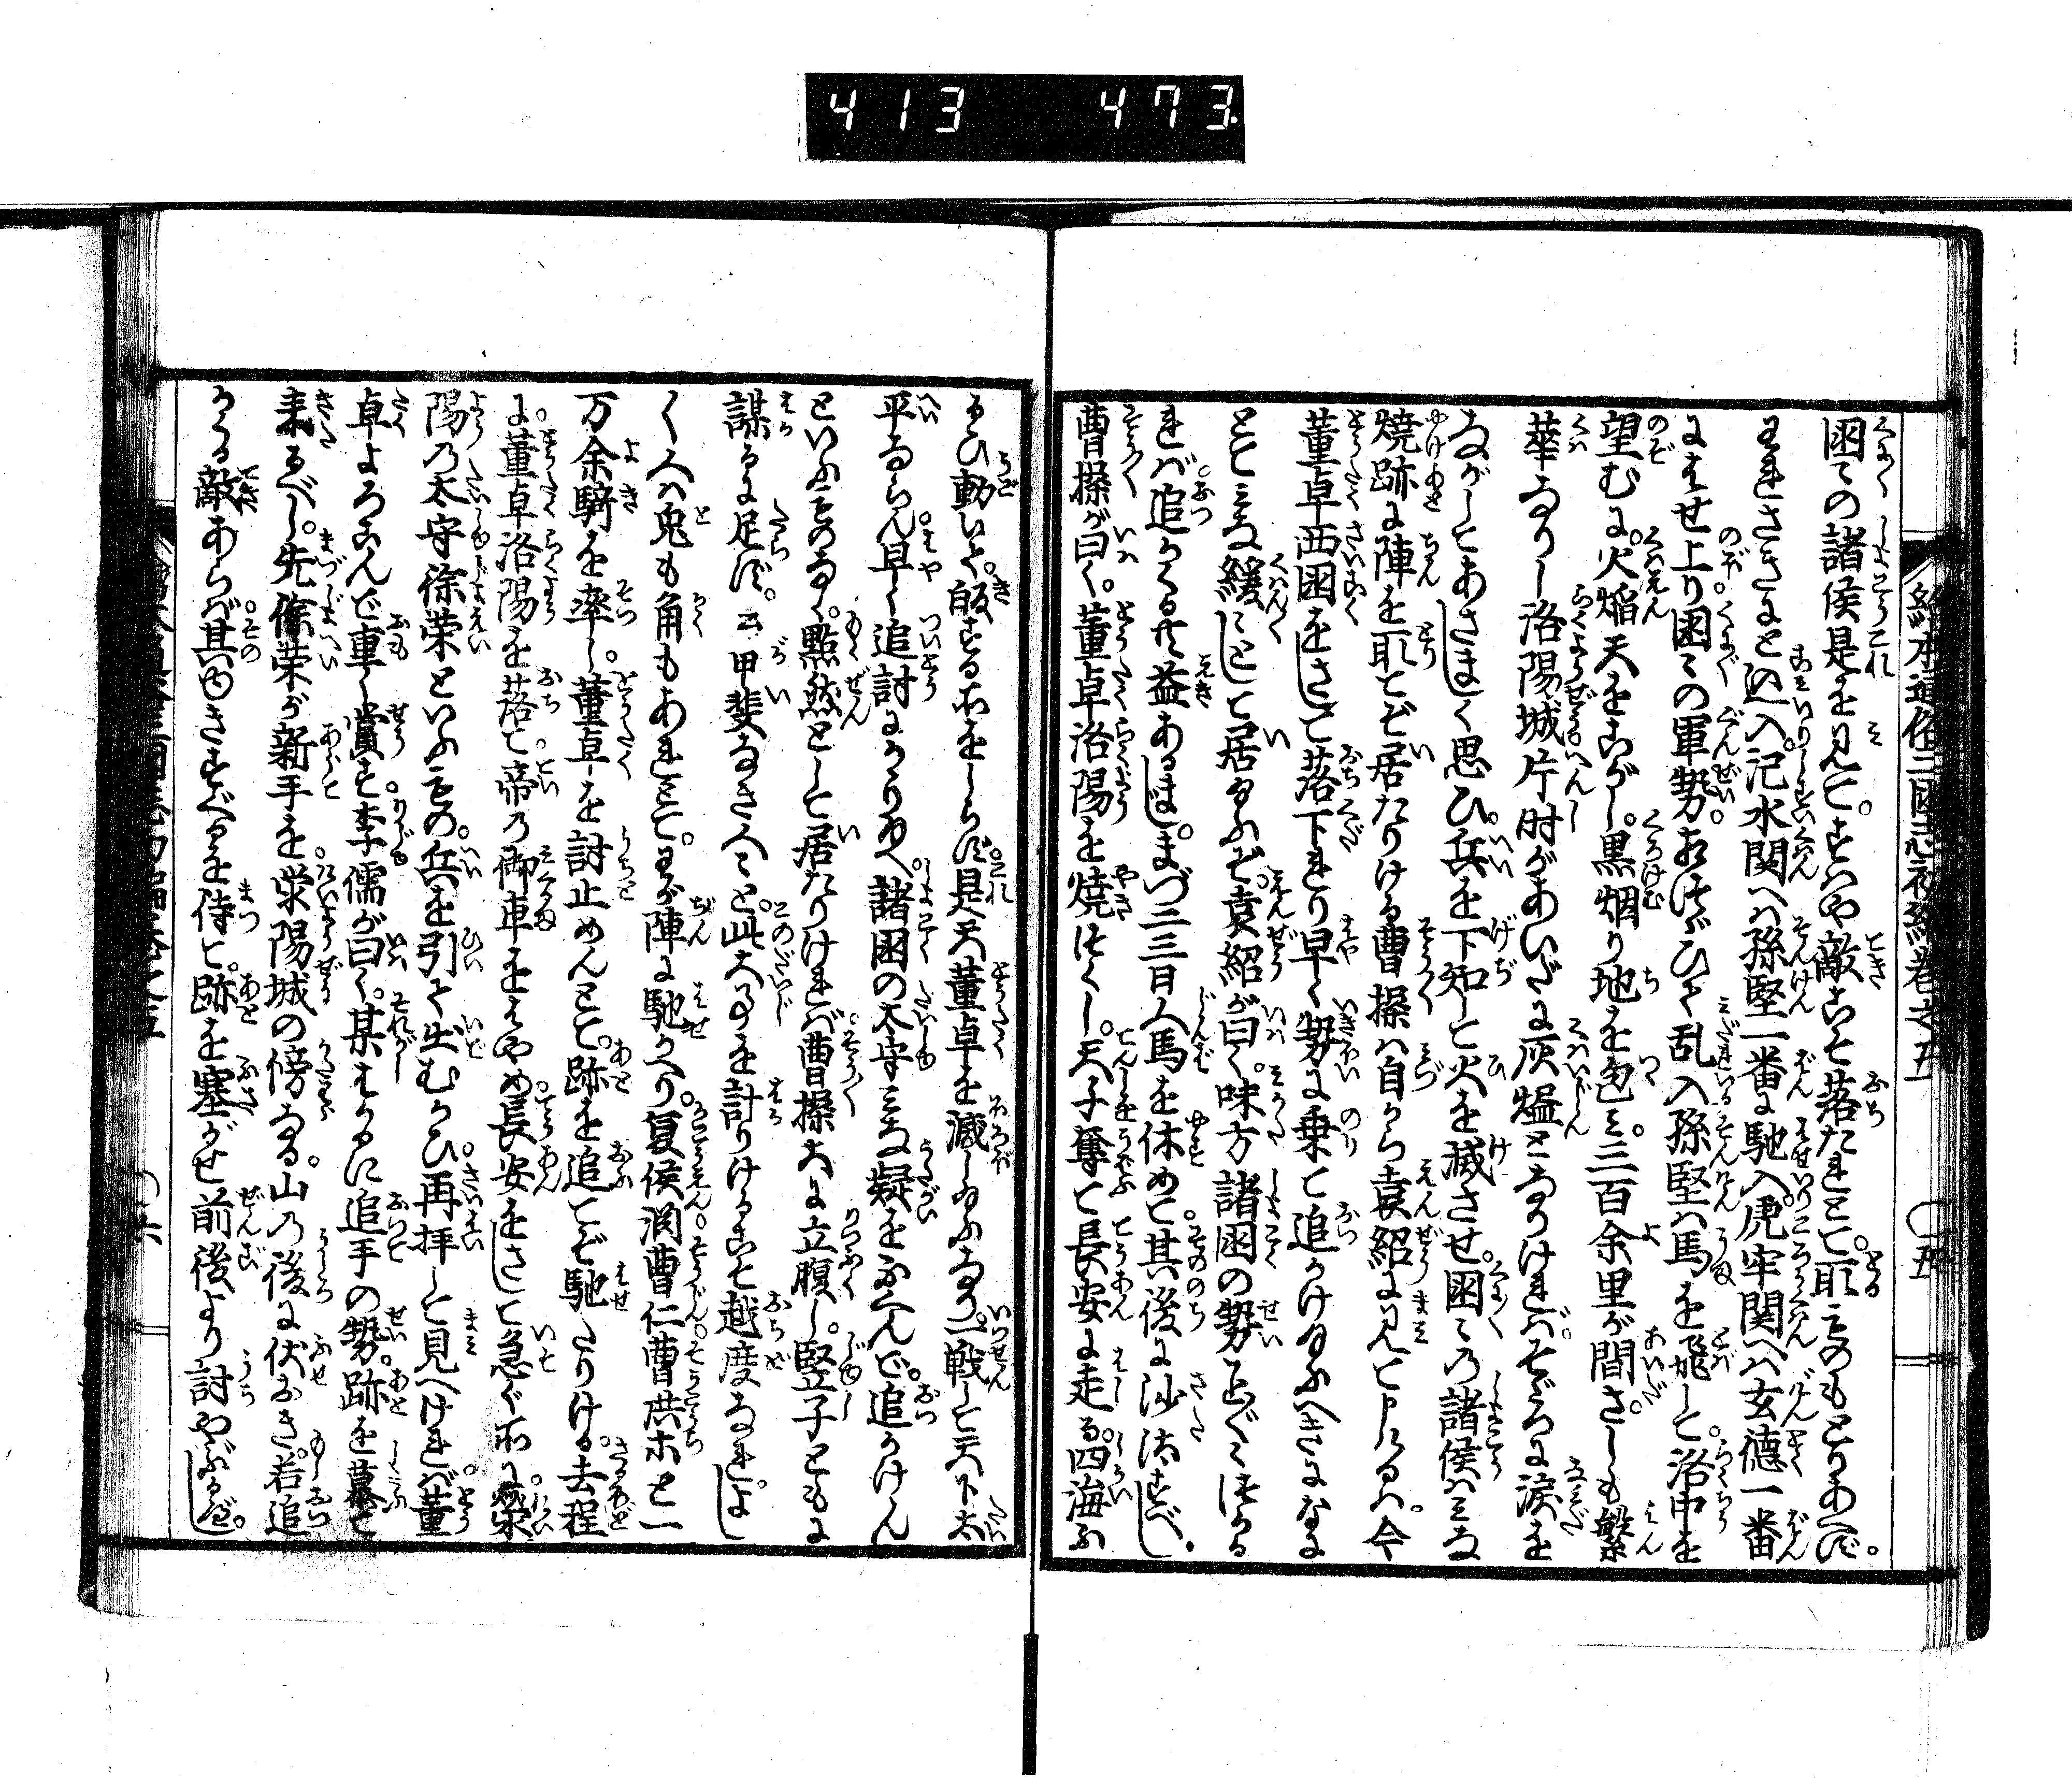 413 473
絵本通俗三国志初編巻之五 〇五
国々の諸侯是を見て。すハや敵こそ落たれとて。取ものもとりあへず。
われさきにと込入。汜水関へハ孫堅一番に馳入。虎牢関へハ玄徳一番
にはせ上り。国々の軍勢。相つゞひて乱入孫堅ハ馬を飛して。洛中を
望むに。火焔天をこがし。黒烟り地を包ミ。三百余里が間。さしも繁
華なりし洛陽城片時があいだに灰燼となりけれバ。そゞろに涙を
ながしてあさましく思ひ。兵を下知して火を滅させ。国々の諸侯ハミな
焼跡に陣を取てぞ居たりける曹操ハ自から袁紹に見へて申けるハ。今
董卓西国をさして落下れり早く勢に乗て追かけ給ふへきになに
とてミな緩々として居給ふぞ。袁紹が曰く。味方諸国の勢こと〴〵くつかる
れバ。追かくる共益あるまじ。まづ二三日人馬を休めて。其後に沙汰すべし。
曹操が曰く。董卓洛陽を焼つくし。天子奪て長安に走る。四海ふ
るひ動いて。皈する所をしらず。是天董卓を滅し給ふなり。一戦して天下太
平ならん。早く追討にかゝり給へ諸国の太守ミな疑をふくんで。追かけん
といふものなく。黙然として居たりけれバ。曹操大に立腹し。竪子ともに
謀るに足ず。云甲斐なき人々と。此大事を計りけるこそ越度なれ。よし
〱人ハ兎も角もあれとて。わが陣に馳かへり。夏侯淵曹仁曹洪ホと一
万余騎を率し。董卓を討止めんとて。跡を追てぞ馳たりける。去程
に。董卓洛陽を落て。帝の御車をはやめ。長安をさして急ぐ所に。滎
陽の太守徐栄といふもの。兵を引て出むかひ。再拝して見へけれバ。董
卓よろこんで重く賞す。李儒が曰く。某はかるに追手の勢。跡を慕て
来るべし。先徐栄が新手を。滎陽城の傍なる。山の後に伏おき。若追
かくる敵あらバ。其ゆきすぐるを待て。跡を塞がせ前後より討やぶるべし。
〇六